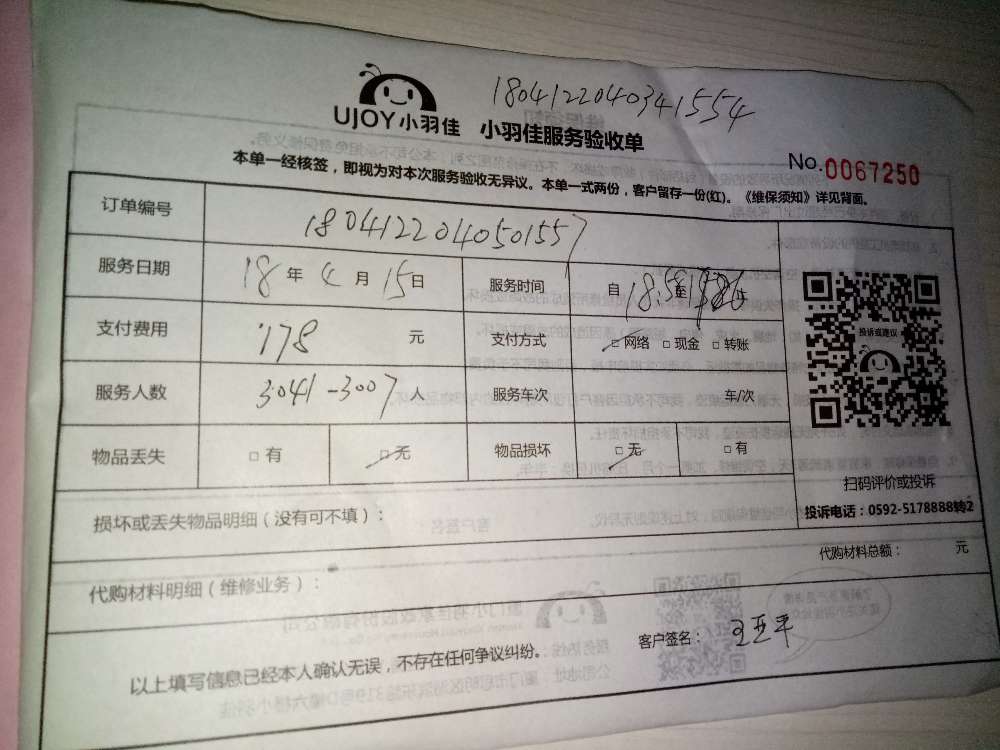 1804122040341554
UJOY小羽佳 小羽佳服务验收单
No.0067250
本单一经核签，即视为对本次服务验收无异议。本单一式两份，客户留存一份(红)。《维保须知》详见背面。
订单编号 1804122040501557
服务日期 18年4月15日 服务时间 自18:58至
支付费用 178元 支付方式 □网络 □现金 □转账
投诉或建议
服务人数 3041-3007人 服务车次 车/次
物品丢失 □有 □无 物品损坏 □无 □有
扫码评价或投诉
损坏或丢失物品明细（没有可不填）：
投诉电话：0592-5178888转2
代购材料总额： 元
代购材料明细（维修业务）：
客户签名：王亚平
以上填写信息已经本人确认无误，不存在任何争议纠纷。